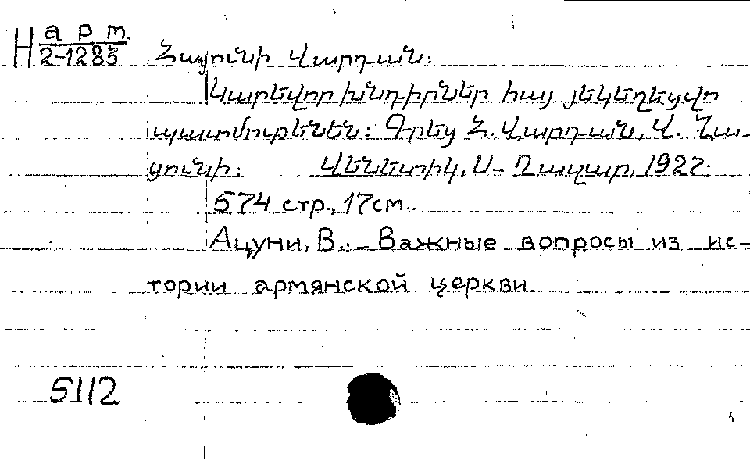 Н арт.
2-1285
Հացունի Վարդան.
Կարեվոր խնդիրներ հայ յեկեղեցվո
պատմութենեն: Գրեց Հ. Վարդան, Վ. Հա-
ցունի: Վենետիկ, Ս. Ղազար, 1927.
574 стр., 17см.
Ацуни, В. - Важные вопросы из ис-
тории армянской церкви
5112